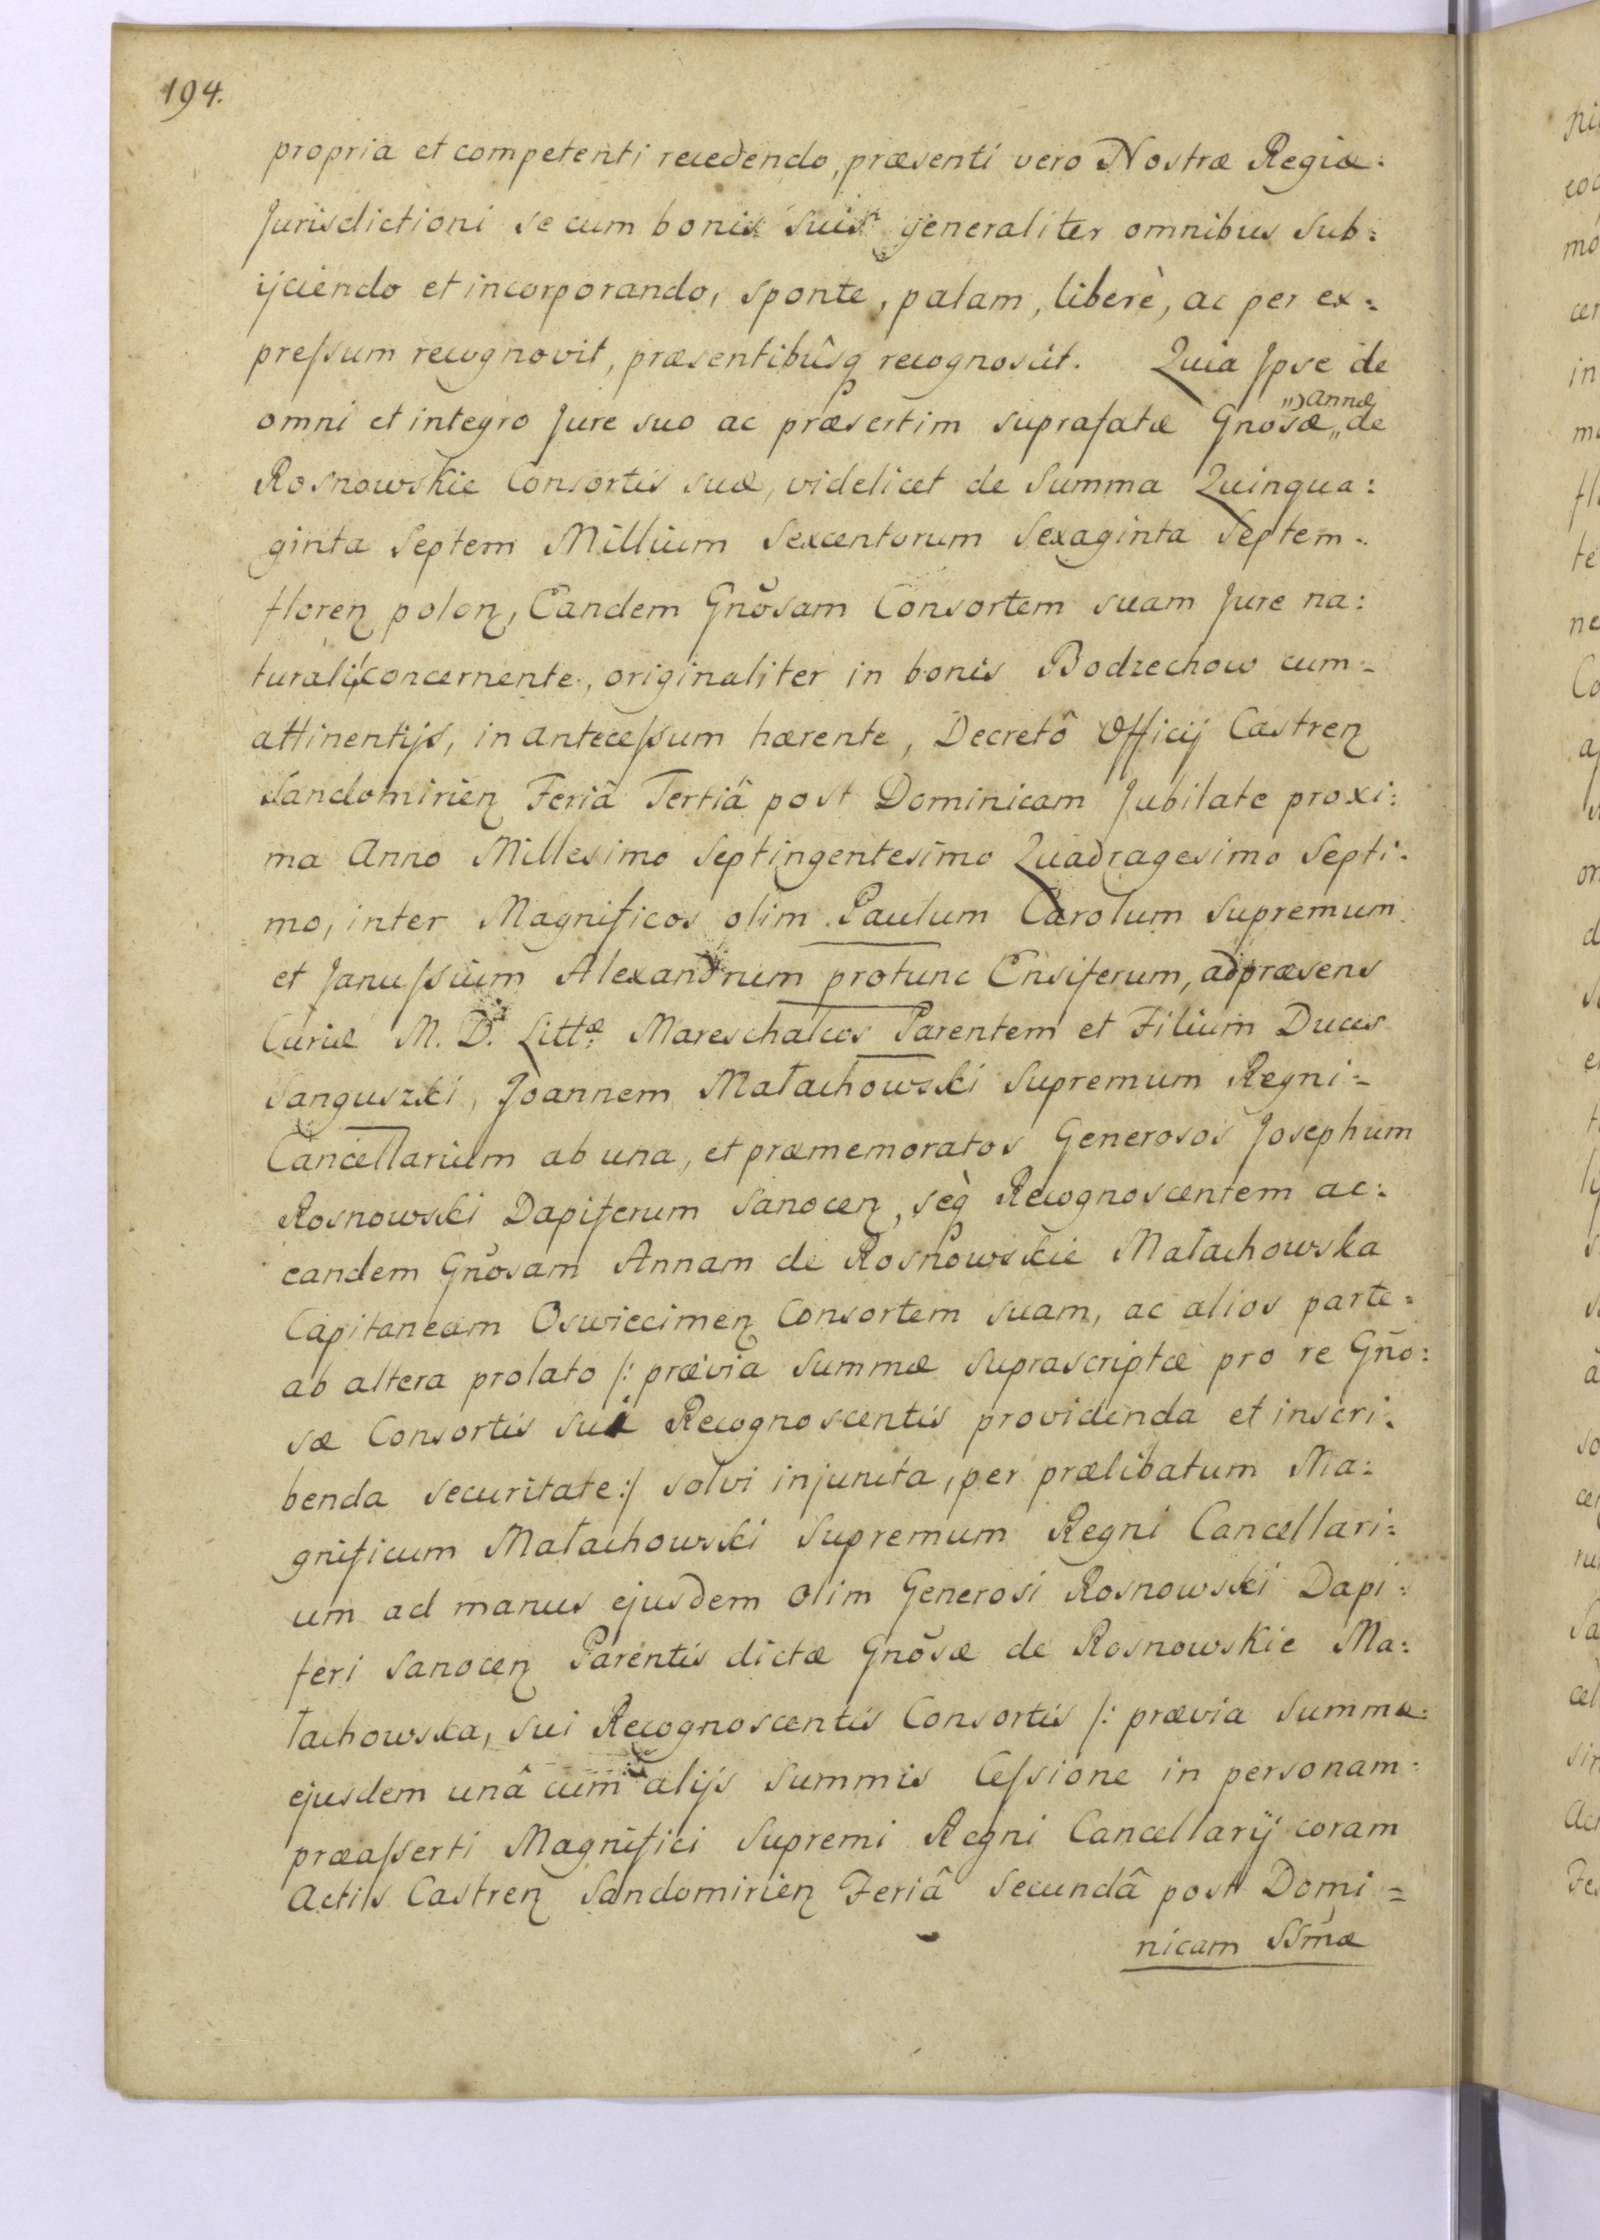 194.
propria et competenti recedendo, præsenti vero Nostræ Regiæ:
Jurisdictioni se cum bonis suis generaliter omnibus sub:
ijciendo et incorporando, sponte, palam, liberè, ac per ex:
preſsum recognovit, præsentibûsq recognoscit. Quia Jpse de
omni et integro Jure suo ac præsertim suprafatæ Gnosæ „Annæ de
Rosnowskie Consortis suæ, videlicet de Summa Quinqua:
ginta Septem Millium Sexcentorum Sexaginta Septem
floren polon, Eandem Gnõsam Consortem suam Jure na:
turali concernente, originaliter in bonis Bodzechow cum
attinentijs, in anteceſsum hærente, Decretô Officij Castren
Sandomirien Feriâ Tertiâ post Dominicam Jubilate proxi:
ma Anno Millesimo Septingentesimo Quadragesimo Septi:
mo, inter Magnificos olim Paulum Carolum Supremum
et Januſsium Alexandrum protunc Ensiferum, adpræsens
Curiæ M. D. Littæ Mareschalcos Parentem et Filium Duces
Sanguszki, Joannem Małachowski Supremum Regni
Cancellarium ab una, et præmemoratos Generosos Josephum
Rosnowski Dapiferum Sanocen, seq̀ Recognoscentem ac:
eandem Gnõsam Annam de Rosnowskie Małachowska
Capitaneam Oswiecimen Consortem suam, ac alios parte
ab altera prolato /: prævia Summæ suprascriptæ pro re Gño:
sæ Consortis sui Recognoscentis providenda et inscri:
benda securitate :/ solvi injuncta, per prælibatum Ma:
gnificum Małachowski Supremum Regni Cancellari:
um ad manus ejusdem olim Generosi Rosnowski Dapi:
feri Sanocen Parentis dictæ Gnõsæ de Rosnowskie Ma:
łachowska, sui Recognoscentis Consortis /: prævia Summæ:
ejusdem unâ cum alijs Summis Ceſsione in personam
præaſserti Magnifici Supremi Regni Cancellarij coram
Actis Castren Sandomirien Feriâ Secundâ post Domi=
nicam SSmæ